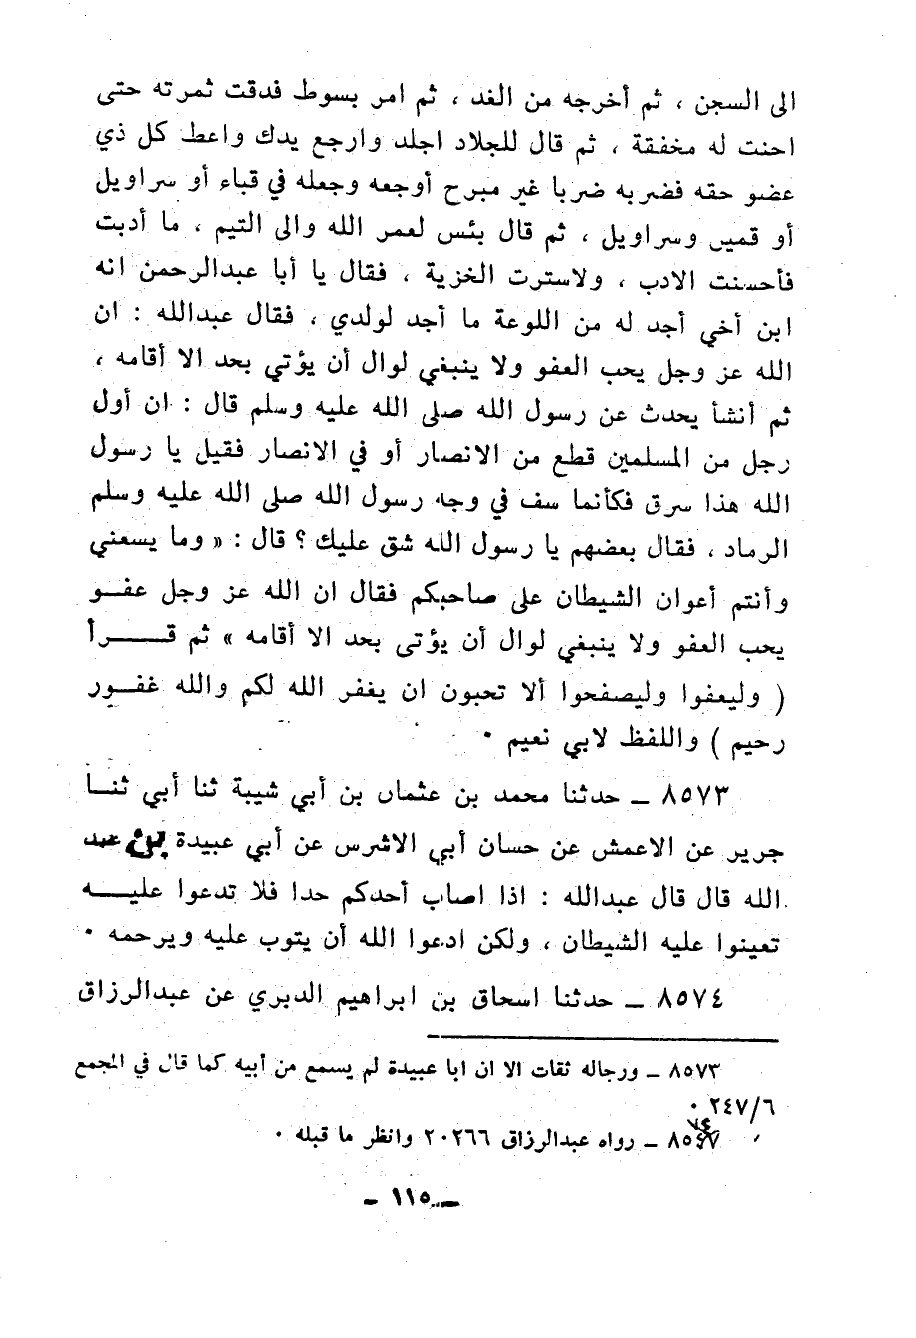 الى السجن ، ثم أخرجه من الغد ، ثم امر بسوط فدقت ثمرته حتى
احنت له مخفقة ، ثم قال للجلاد اجلد وارجع يدك واعط كل ذي
عضو حقه فضربه ضربا غير مبرح أوجعه وجعله في قباء أو سراويل
أو قميص وسراويل ، ثم قال بئس لعمر الله والى التيم ، ما أدبت
فأحسنت الادب ، ولاسترت الخزية ، فقال يا أبا عبدالرحمن انه
ابن أخي أجد له من اللوعة ما أجد لولدي ، فقال عبدالله : ان
الله عز وجل يحب العفو ولا ينبغي لوال أن يؤتي بحد الا أقامه ،
ثم أنشأ يحدث عن رسول الله صلى الله عليه وسلم قال : ان أول
رجل من المسلمين قطع من الانصار أو في الانصار فقيل يا رسول
الله هذا سرق فكأنما سف في وجه رسول الله صلى الله عليه وسلم
الرماد ، فقال بعضهم يا رسول الله شق عليك ؟ قال : « وما يسعني
وأنتم أعوان الشيطان على صاحبكم فقال ان الله عز وجل عفو
يحب العفو ولا ينبغي لوال أن يؤتى بحد الا أقامه » ثم قرأ
( وليعفوا وليصفحوا ألا تحبون ان يغفر الله لكم والله غفور
رحيم ) واللفظ لابي نعيم ٠
٨٥٧٣ ــ حدثنا محمد بن عثمان بن أبي شيبة ثنا أبي ثنا
جرير عن الاعمش عن حسان أبي الاشرس عن أبي عبيدة بن عبد
الله قال قال عبدالله : اذا اصاب أحدكم حدا فلا تدعوا عليه
تعينوا عليه الشيطان ، ولكن ادعوا الله أن يتوب عليه ويرحمه ٠
٨٥٧٤ ــ حدثنا اسحاق بن ابراهيم الدبري عن عبدالرزاق
٨٥٧٣ ــ ورجاله ثقات الا ان ابا عبيدة لم يسمع من أبيه كما قال في المجمع
٢٤٧/٦ ٠
٨٥٧٤ ــ رواه عبدالرزاق ٢٠٢٦٦ وانظر ما قبله ٠
ــ ١١٥ ــ